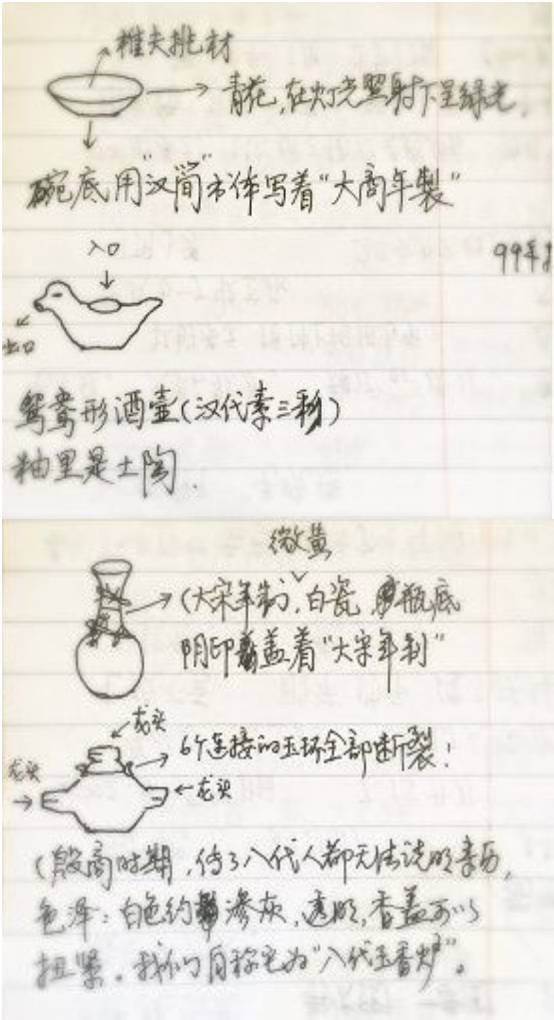 樵夫挑材
青花,在灯光照射下呈绿光,
碗底用"汉简"书体写着"大商年製"
入口
99年
出口
鸳鸯形酒壶(汉代素三彩)
釉里是土陶
微黄
(大宋年制),白瓷,瓶底
阴印盖着"大宋年制"
龙头
6个连接的玉环全部断裂!
龙头
龙头
(殷商时期,传了八代人都无法说明来历,
色泽:白色约渗灰,透明,香盖可以
扭紧。我们自称它为"八代玉香炉"。